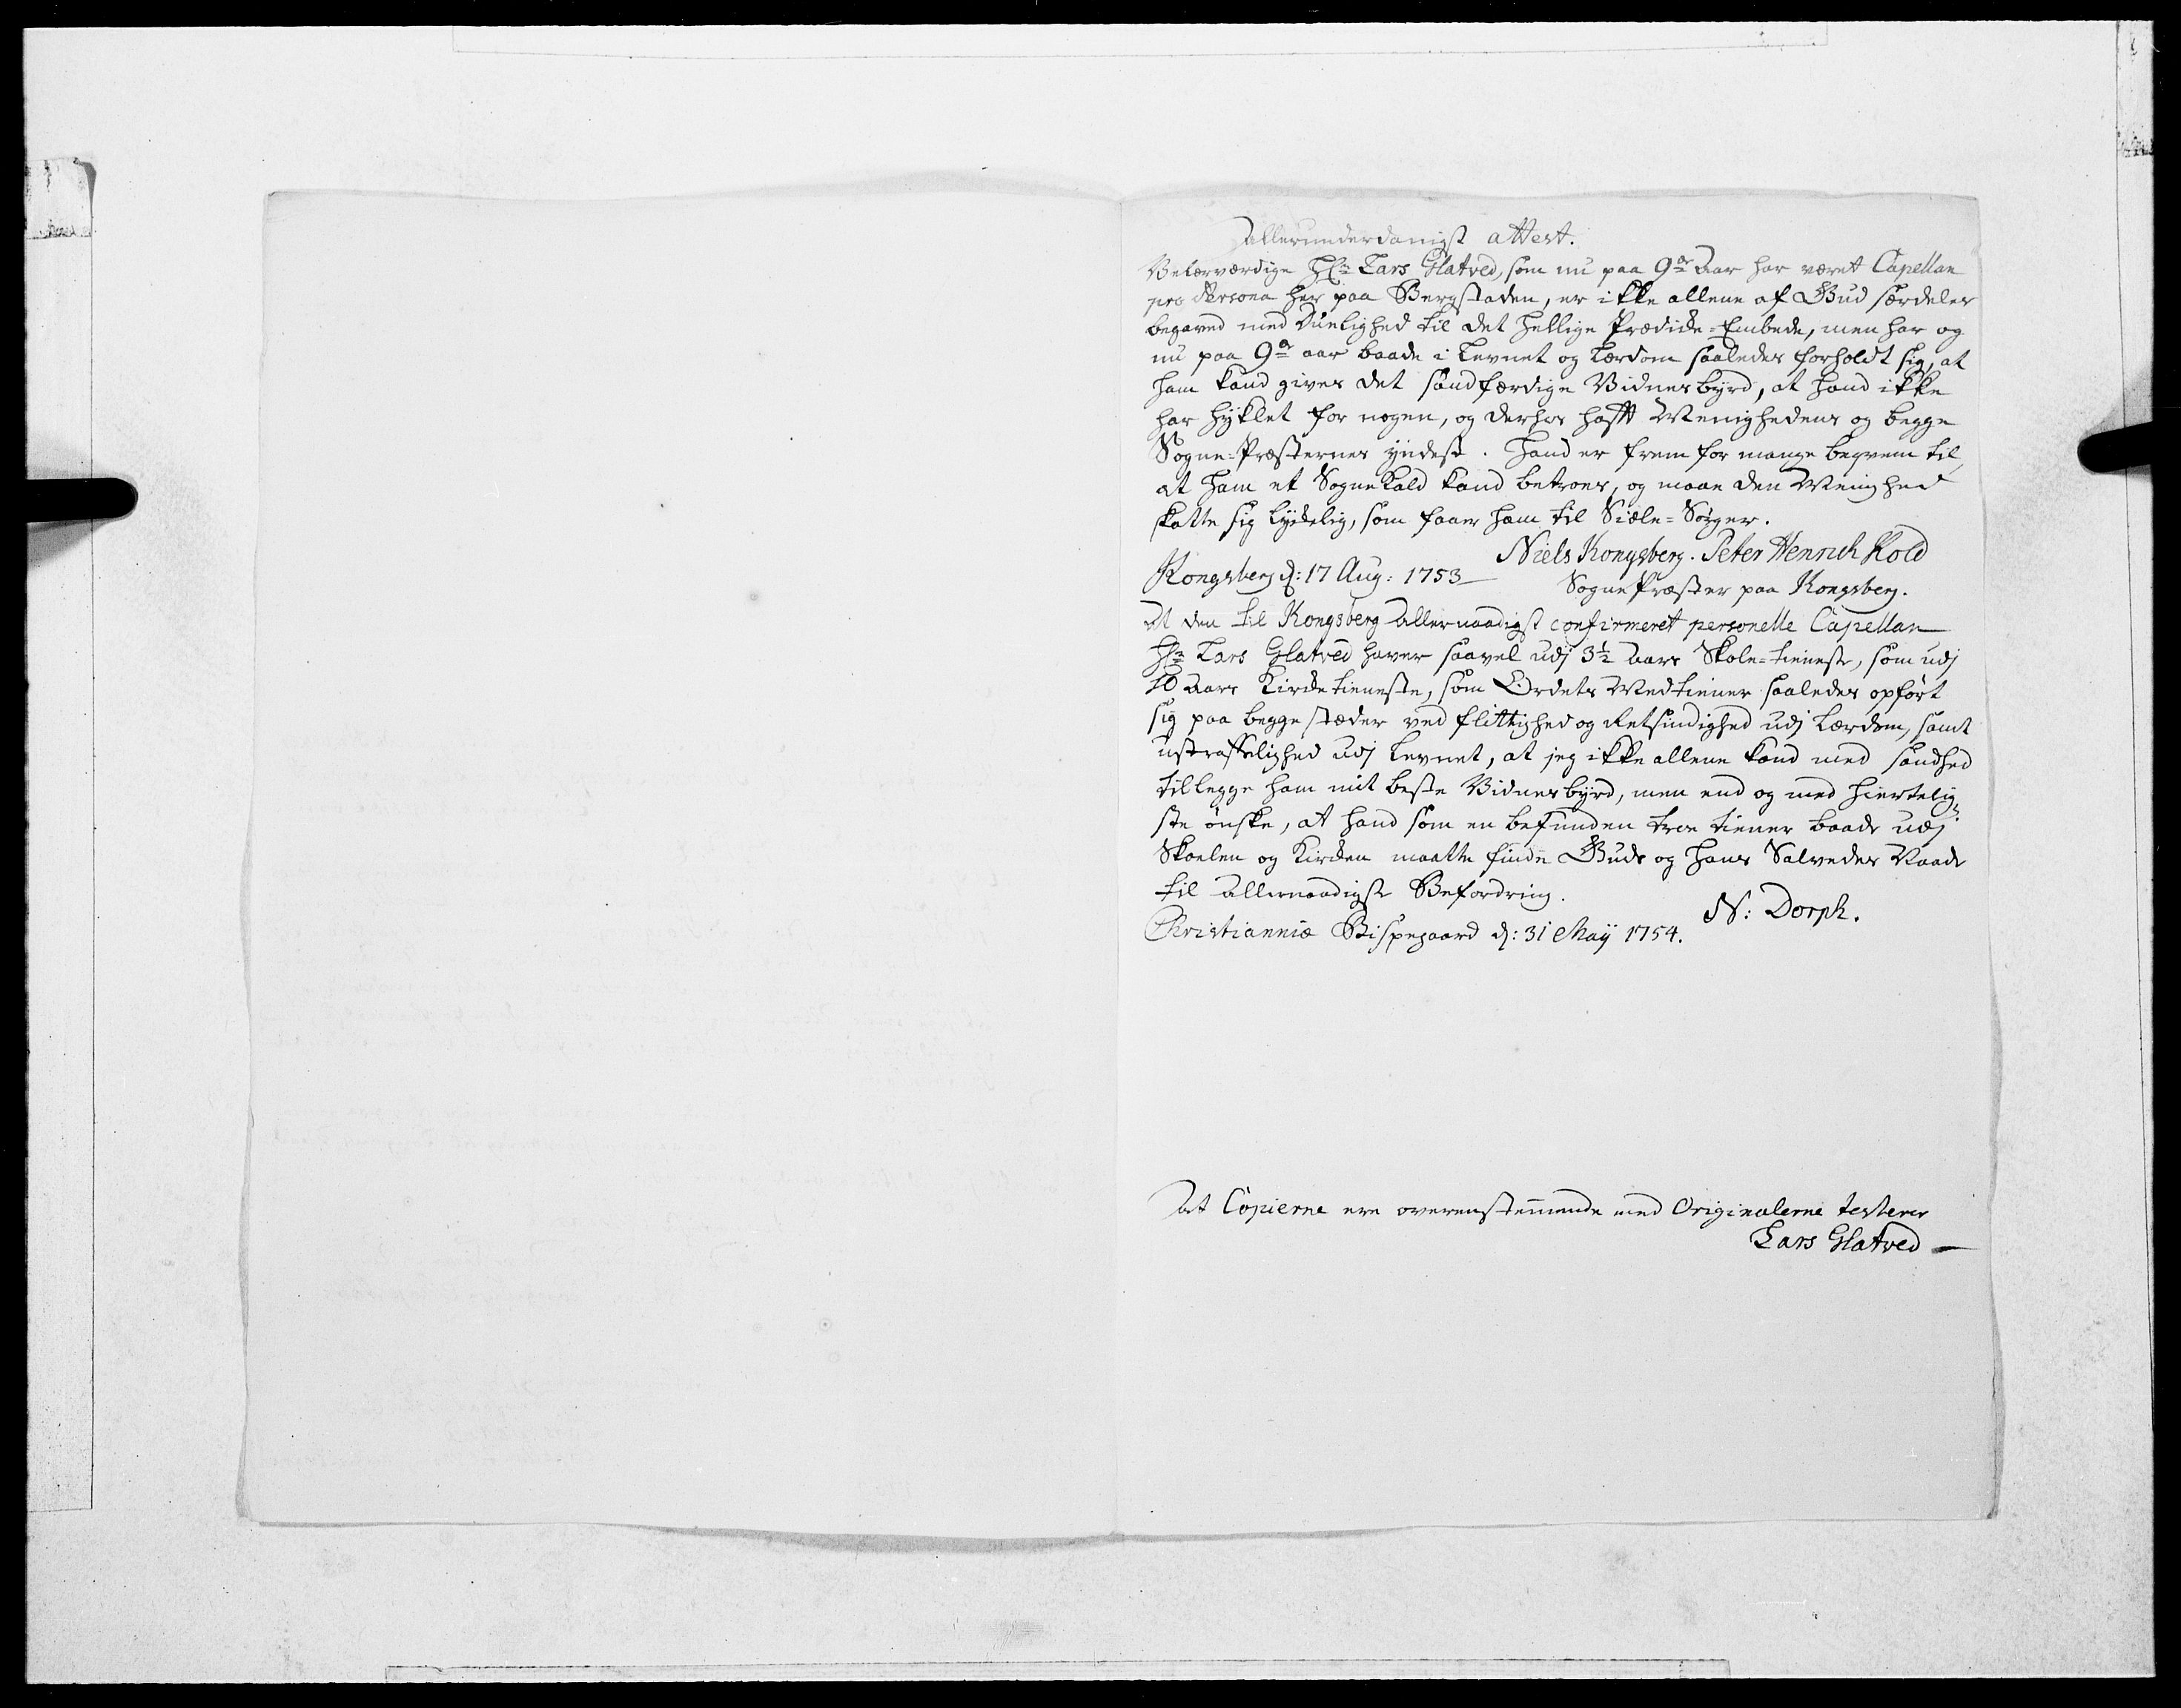 Allerunderdanigst attest.
Velærværdige Hr: Lars Glatved, som nu paa 9de Aar har været Capellan
pro Persona her paa Bergstaden, er ikke allene af Gud særdeles
begaved med Duelighed til det hellige Prædicke-Embede, men har og
nu paa 9de aar baade i Levnet og Lærdom saaledes forholdt sig, at
ham kand gives det sandfærdige Vidnesbyrd, at hand ikke
har hyklet for nogen, og derhos hafft Menighedens og begge
Sogne-Præsternes yndest. Hand er frem for mange beqvem til,
at ham et Sognekald kand betroes, og maae den Menighed
skatte sig lydelig, som faaer ham til Siæle-Sørger.
Niels Kongsberg. Peter Henrich Kold
Kongsberg d: 17 Aug: 1753
SognePræster paa Kongsberg.
At den til Kongsberg allernaadigst confirmeret personelle Capellan
Hr: Lars Glatved haver saavel udj 3½ Aars Skole-tieneste, som udj
10 Aars Kircketieneste, som Ordets Medtiener saaledes opført
sig paa begge stæder ved flittighed og Retsindighed udj Lærdom, samt
ustraffelighed udj Levnet, at jeg ikke allene kand med sandhed
tillegge ham mit beste Vidnesbyrd, men end og med hiertelig-
ste ønske, at hand som en befunden troe tiener baade udj
Skoelen og Kircken maatte finde Guds og Hans Salvedes Naade
til allernaadigst Befordring.
N: Dorph.
Christianniæ Bispegaard d: 31 Maij 1754.
At Copierne ere overenstemmende med Originalerne testerer
Lars Glatved